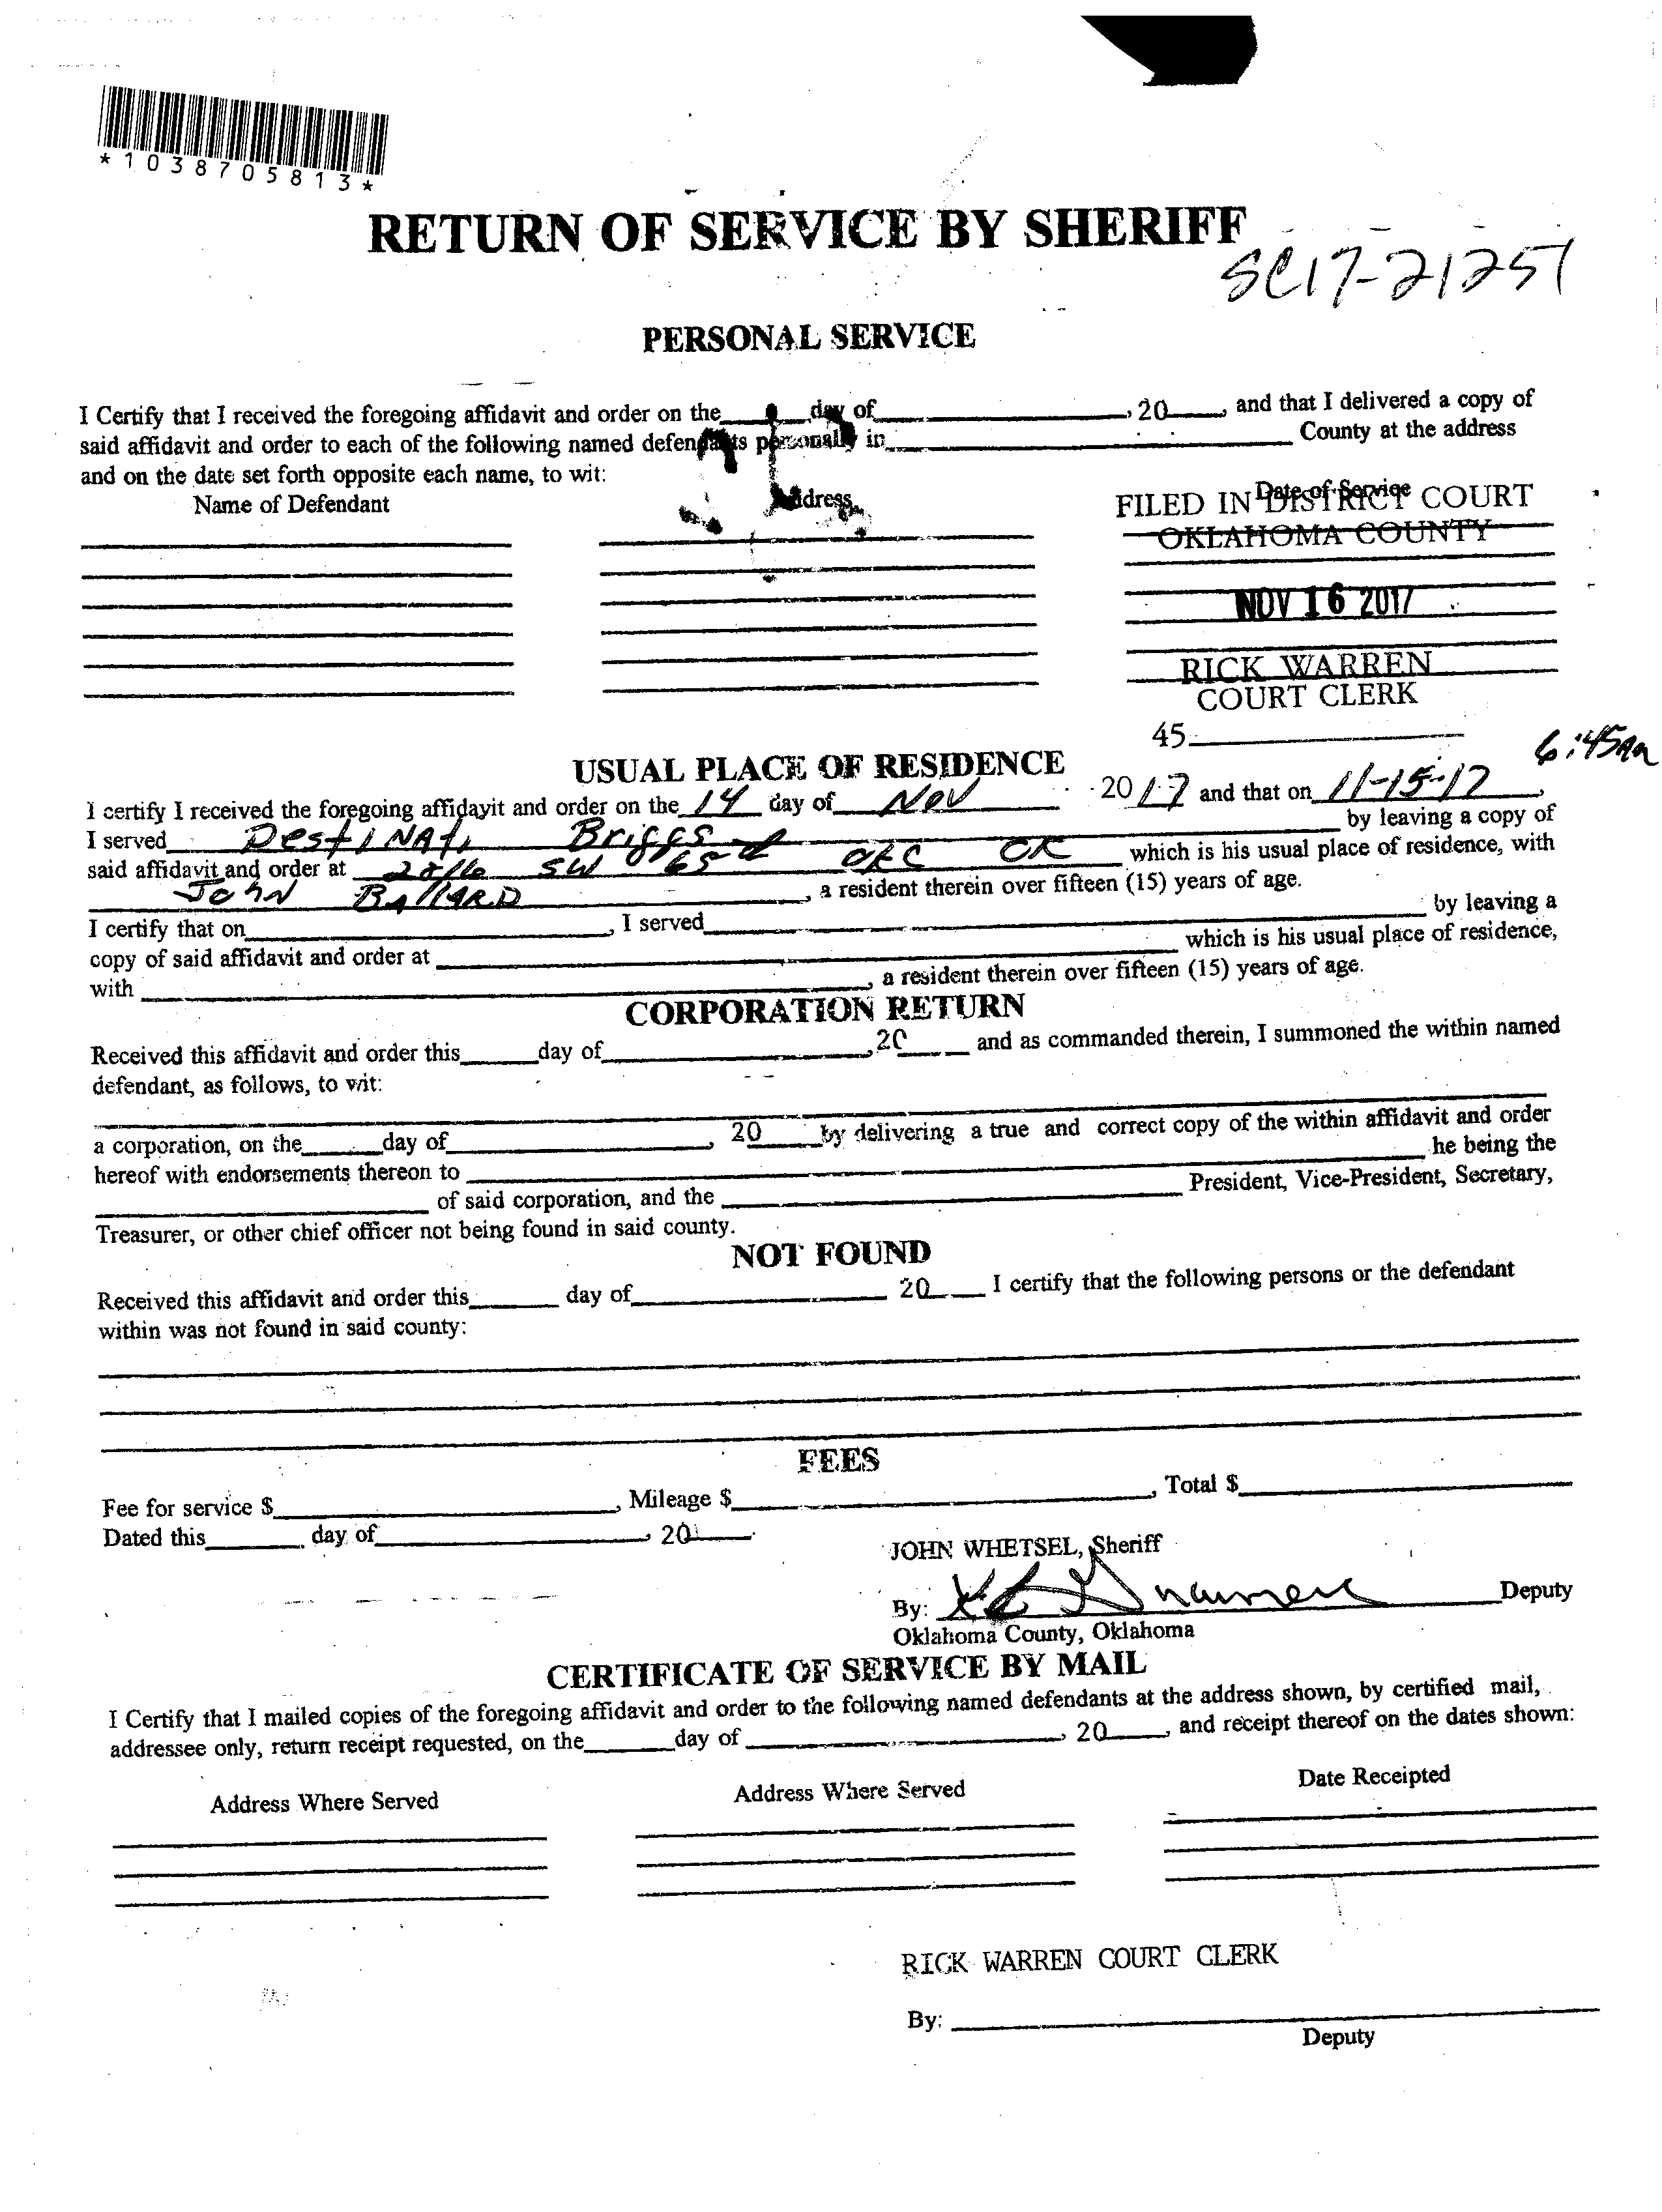 *1038705813*
RETURN OF SERVICE BY SHERIFF
SC17-21251
PERSONAL SERVICE
I Certify that I received the foregoing affidavit and order on the____day of____, 20____, and that I delivered a copy of
said affidavit and order to each of the following named defendants personally in____County at the address
and on the date set forth opposite each name, to wit:
Name of Defendant Address Date of Service
FILED IN DISTRICT COURT
OKLAHOMA COUNTY
NOV 16 2017
RICK WARREN
COURT CLERK
45____
6:45AM
USUAL PLACE OF RESIDENCE
I certify I received the foregoing affidayit and order on the 14 day of Nov 2017 and that on 11-15-17,
I served Destinati Briggs by leaving a copy of
said affidavit and order at SW 65 OKC OK which is his usual place of residence, with
John Ballard, a resident therein over fifteen (15) years of age.
I certify that on____, I served____by leaving a
copy of said affidavit and order at____which is his usual place of residence,
with____, a resident therein over fifteen (15) years of age.
CORPORATION RETURN
Received this affidavit and order this____day of____, 20____and as commanded therein, I summoned the within named
defendant, as follows, to wit:
a corporation, on the____day of____, 20____by delivering a true and correct copy of the within affidavit and order
hereof with endorsements thereon to____he being the
____of said corporation, and the____President, Vice-President, Secretary,
Treasurer, or other chief officer not being found in said county.
NOT FOUND
Received this affidavit and order this____day of____20____I certify that the following persons or the defendant
within was not found in said county:
FEES
Fee for service $____, Mileage $____, Total $____
Dated this____day of____, 20____.
JOHN WHETSEL, Sheriff
By:____Deputy
Oklahoma County, Oklahoma
CERTIFICATE OF SERVICE BY MAIL
I Certify that I mailed copies of the foregoing affidavit and order to the following named defendants at the address shown, by certified mail,
addressee only, return receipt requested, on the____day of____, 20____, and receipt thereof on the dates shown:
Address Where Served Address Where Served Date Receipted
RICK WARREN COURT CLERK
By:____
Deputy